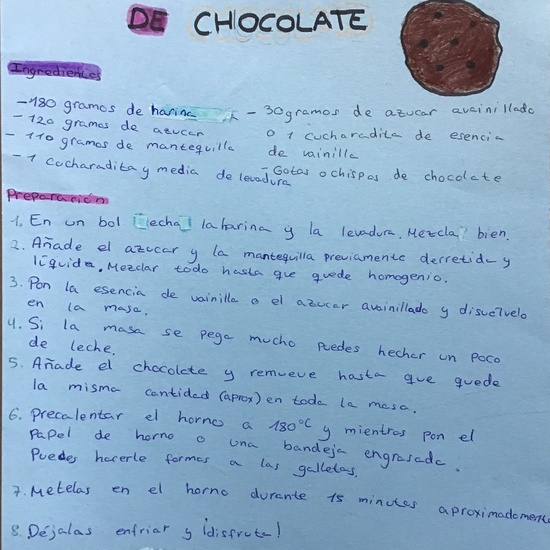 DE CHOCOLATE
Ingredientes
-180 gramos de harina
-120 gramos de azucar
-110 gramos de mantequilla
-1 cucharadita y media de levadura
-30gramos de azucar avainillado
o 1 cucharadita de esencia
de vainilla
-Gotas o chispas de chocolate
Preparación
1. En un bol echa la harina y la levadura. Mezcla bien.
2. Añade el azucar y la mantequilla previamente derretida y
líquida. Mezclar todo hasta que quede homogenio.
3. Pon la esencia de vainilla o el azucar avainillado y disuelvelo
en la masa.
4. Si la masa se pega mucho puedes hechar un poco
de leche.
5. Añade el chocolate y remueve hasta que quede
la misma cantidad (aprox) en toda la masa.
6. Precalentar el horno a 180°C y mientras pon el
papel de horno o una bandeja engrasada.
Puedes hacerle formas a las galletas.
7. Metelas en el horno durante 15 minutos aproximadamente
8. Déjalas enfriar y ¡disfruta!